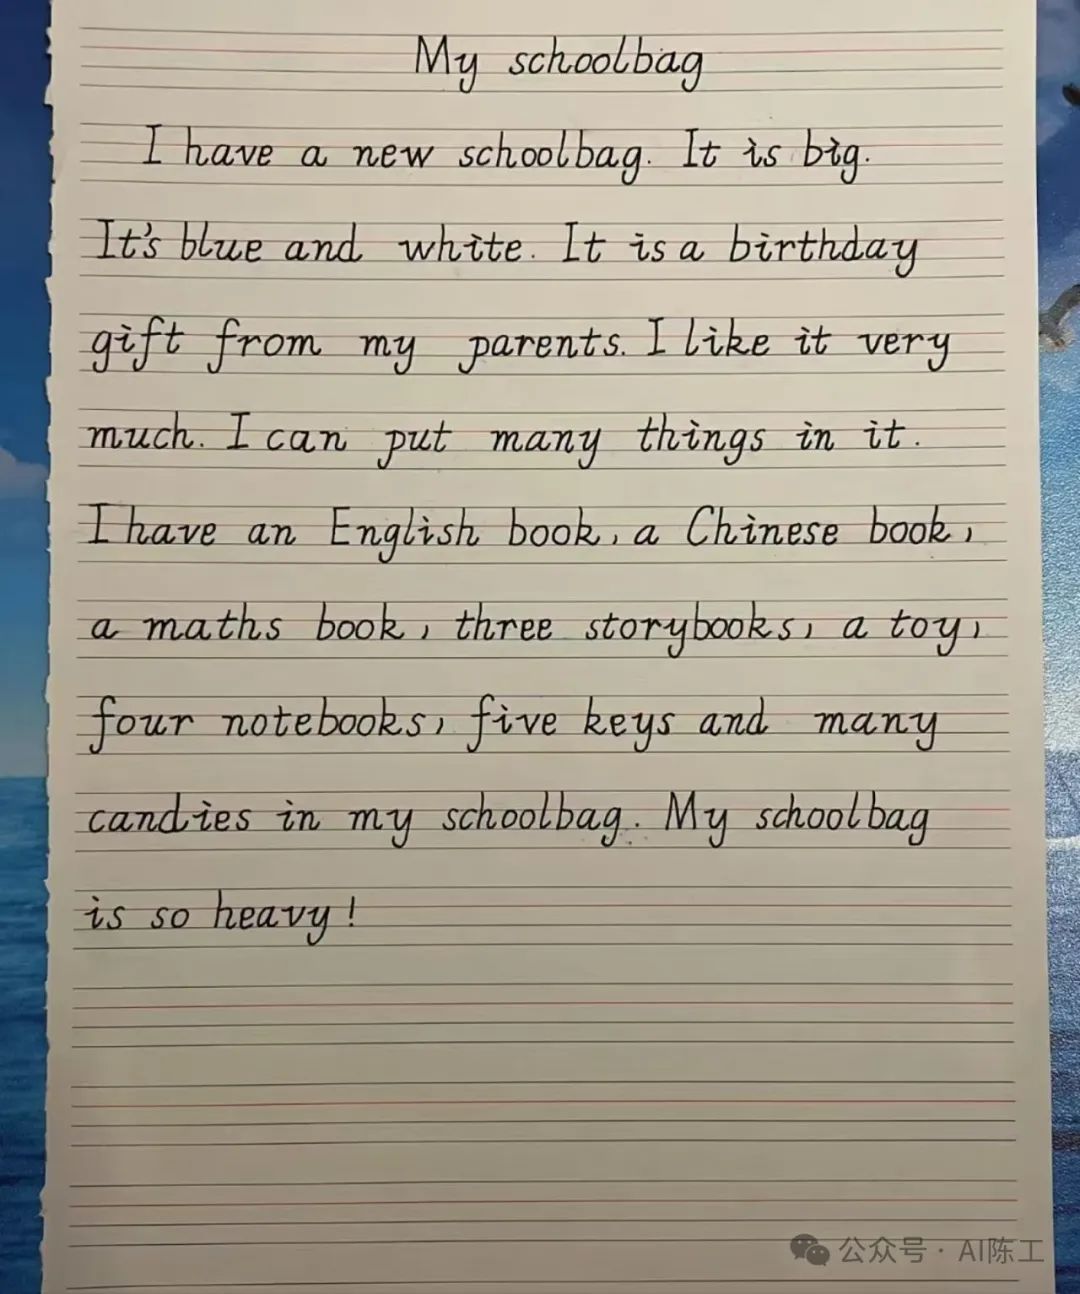 My schoolbag
I have a new schoolbag. It is big.
It's blue and white. It is a birthday
gift from my parents. I like it very
much. I can put many things in it.
I have an English book, a Chinese book,
a maths book, three storybooks, a toy,
four notebooks, five keys and many
candies in my schoolbag. My schoolbag
is so heavy!
公众号 · AI陈工